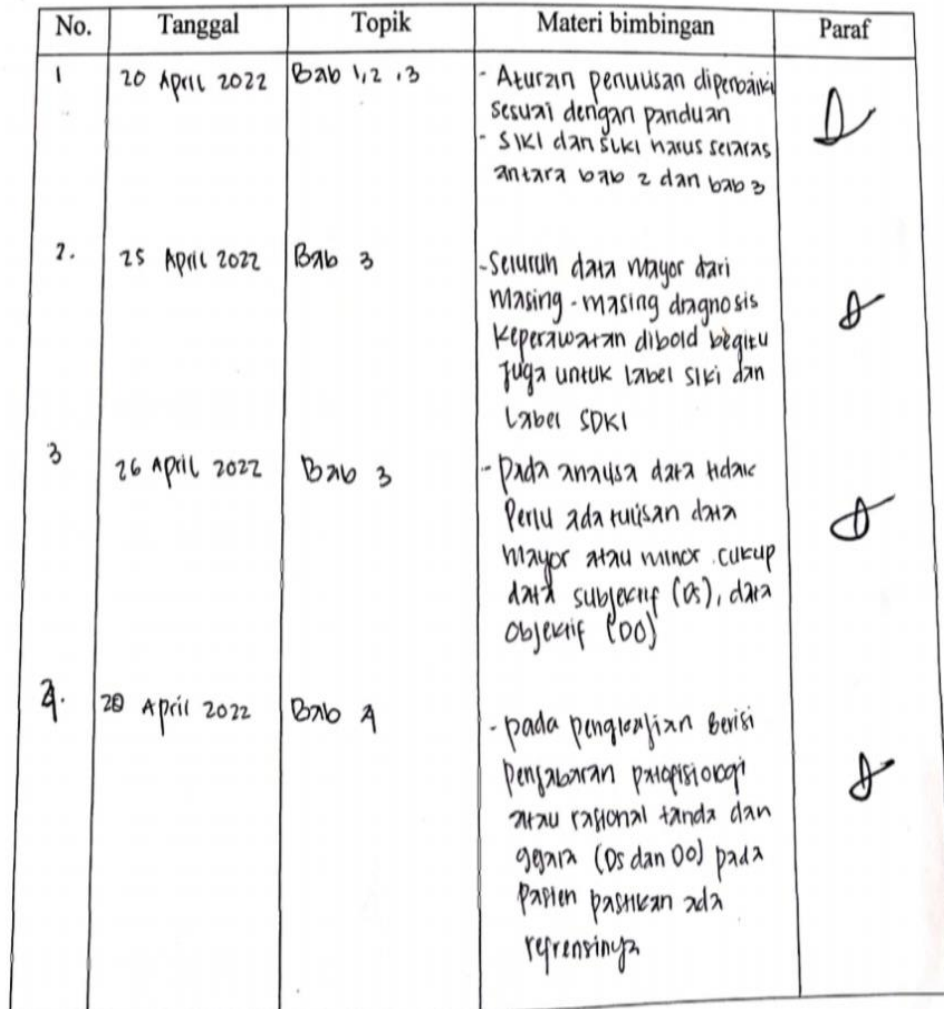 No. Tanggal Topik Materi bimbingan Paraf
1 20 April 2022 Bab 1,2,3 - Aturan penulisan diperbaiki
sesuai dengan panduan
- SIKI dan SLKI harus selaras
antara bab 2 dan bab 3
2. 25 April 2022 Bab 3 - Seluruh data Mayor dari
Masing-masing diagnosis
keperawatan dibold begitu
juga untuk Label SIKI dan
Label SDKI
3 26 April 2022 Bab 3 - Pada analisa data tidak
Perlu ada tulisan data
Mayor atau minor . cukup
data subjektif (DS), data
objektif (DO)
4. 28 April 2022 Bab 4 - pada pengkajian Berisi
penjabaran patopisiologi
atau rasional tanda dan
gejala (Ds dan DO) pada
Pasien pastikan ada
refrensinya